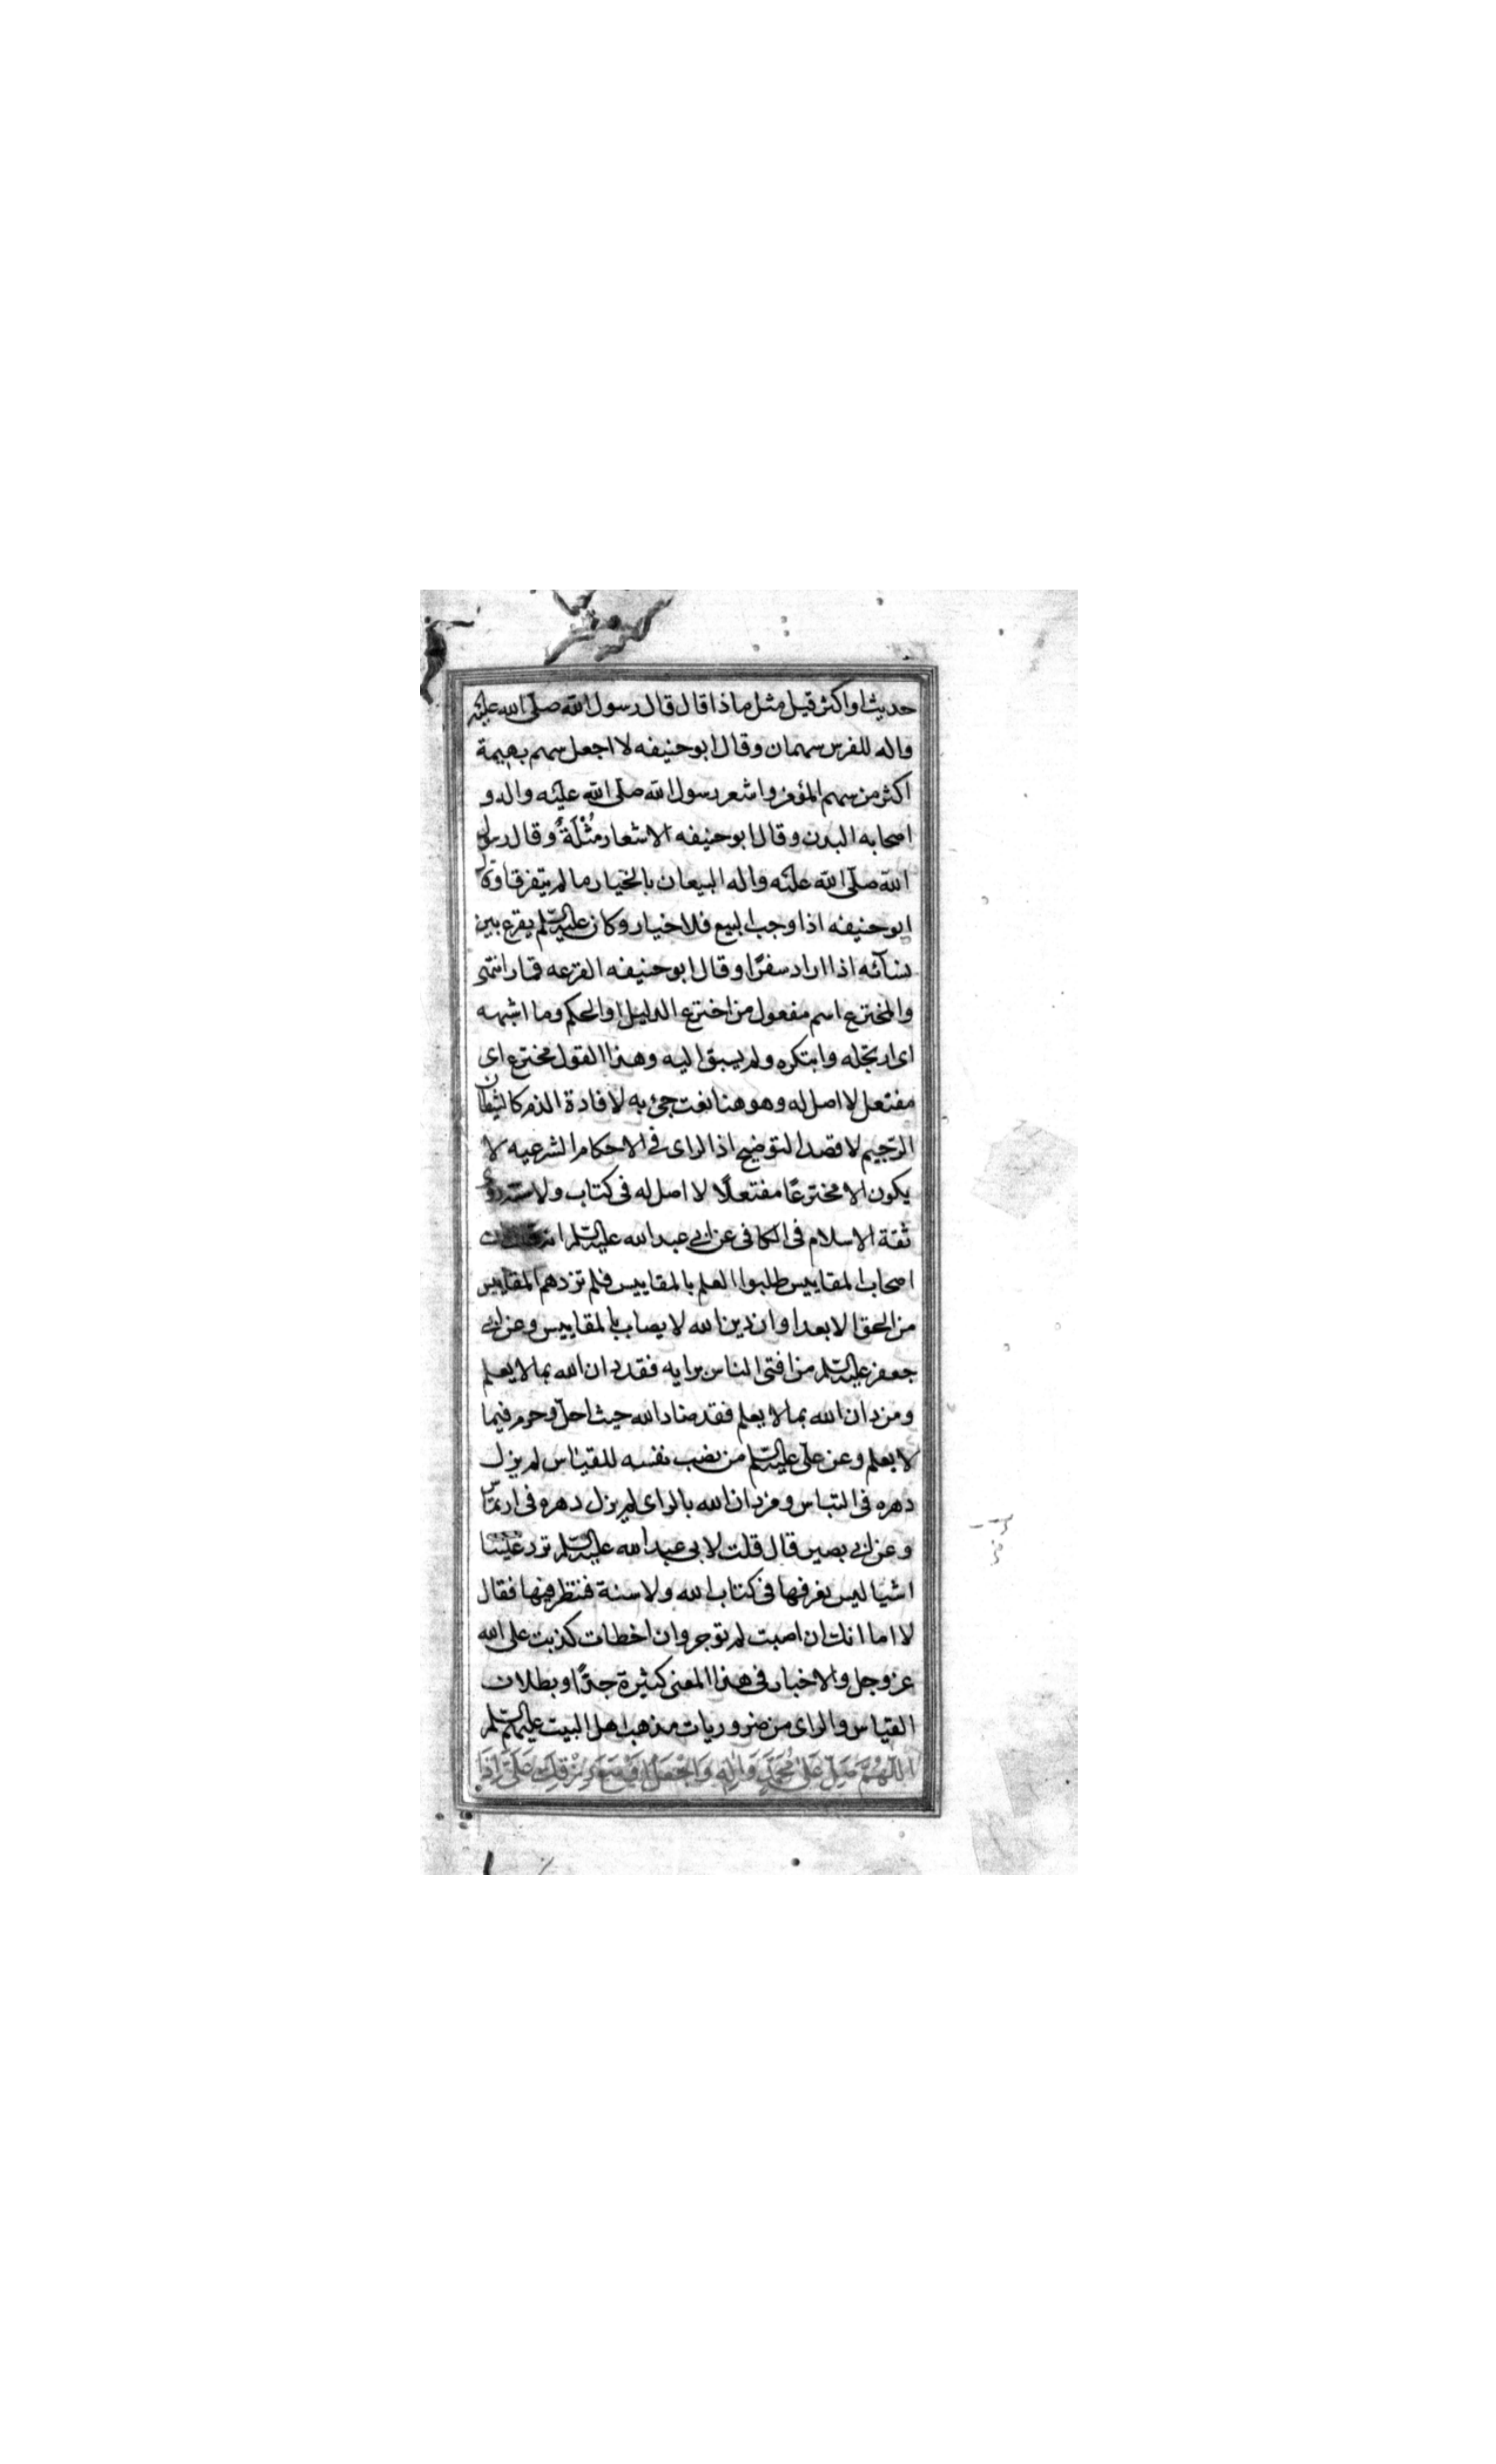 حديثا او اكثر قيل مثل ماذا قال قال رسول الله صلى الله عليه
واله للفرس سهمان وقال ابو حنيفه لا اجعل سهم بهيمة
اكثر من سهم المؤمن واشعر رسول الله صلى الله عليه واله و
اصحابه البدن وقال ابو حنيفه الاشعار مُثْلَةٌ وقال رسول
الله صلى الله عليه واله البيعان بالخيار ما لم يتفرقا وقال
ابو حنيفه اذا وجب البيع فلا خيار وكان عليه السلم يقرع بين
نسآئه اذا اراد سفرًا وقال ابو حنيفه القرعه قمار انتهى
والمخترع اسم مفعول من اخترع الدليل او الحكم وما اشبهه
اى ارتجله وابتكره ولم يسبق اليه وهذا القول مخترع اى
مفتعل لا اصل له وهو هنا نعت جئ به لافادة الذم كالشيطان
الرجيم لا قصد التوضيح اذ الراى فى الاحكام الشرعيه لا
يكون الا مخترعًا مفتعلًا لا اصل له فى كتاب ولا سنه روى
ثقة الاسلام فى الكافى عن ابى عبد الله عليه السلم ان
اصحاب المقاييس طلبوا العلم بالمقاييس فلم تزدهم المقاييس
من الحق الا بعدا وان دين الله لا يصاب بالمقاييس وعن ابى
جعفر عليه السلم من افتى الناس برايه فقد دان الله بما لا يعلم
ومن دان الله بما لا يعلم فقد ضاد الله حيث احلّ وحرم فيما
لا يعلم وعن على عليه السلم من نصب نفسه للقياس لم يزل
دهره فى التباس ومن دان الله بالراى لم يزل دهره فى ارتماس
وعن ابى بصير قال قلت لابى عبد الله عليه السلم ترد علينا
اشيا ليس نعرفها فى كتاب الله ولا سنة فننظر فيها فقال
لا اما انك ان اصبت لم توجر وان اخطات كذبت على الله
عز وجل والاخبار فى هذا المعنى كثيرة جدًا وبطلان
القياس والراى من ضروريات مذهب اهل البيت عليهم السلم
اللَّهُمَّ صَلِّ عَلى مُحَمَّدٍ وَالِهِ وَاجْعَلْ اَوْسَعَ رِزْقِكَ عَلَىَّ اِذَا